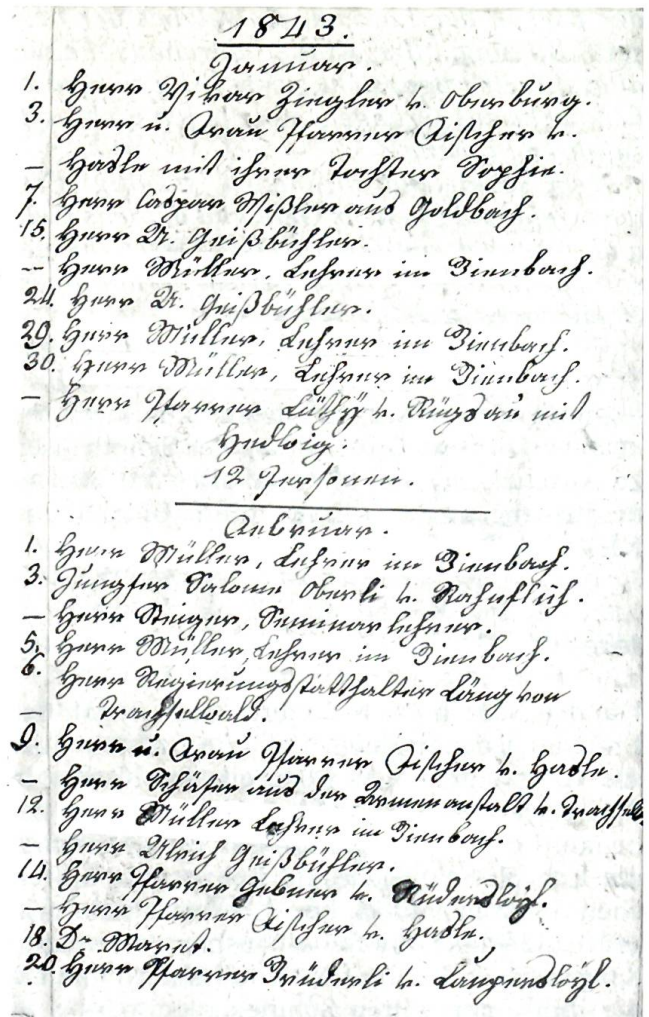 1843.
Januar.
1. Herr Vikar Ziegler v. Oberburg.
3. Herr u. Frau Pfarrer Fischer v.
— Hasle mit ihrer Tochter Sophie.
7. Herr Caspar Wißler aus Goldbach.
15. Herr U. Geißbühler.
— Herr Müller, Lehrer im Bienbach.
24. Herr U. Geißbühler.
29. Herr Müller, Lehrer im Bienbach.
30. Herr Müller, Lehrer im Bienbach.
— Herr Pfarrer Lüthÿ v. Rügsau mit
Hedwig.
12 Personen.
Februar.
1. Herr Müller, Lehrer im Bienbach.
3. Jungfer Salome Oberli v. Rahnflüh.
— Herr Steiger, Seminarlehrer.
5. Herr Müller, Lehrer im Bienbach.
6. Herr Regierungsstatthalter Läng von
— Trachselwald.
9. Herr u. Frau Pfarrer Fischer v. Hasle.
— Herr Schäfer aus der Armenanstalt v. Trachselw
12. Herr Müller Lehrer im Bienbach.
— Herr Ulrich Geißbühler.
14. Herr Pfarrer v. Rüderswÿl.
— Herr Pfarrer Fischer v. Hasle.
18. Dr Maret.
20. Herr Pfarrer Brüderli v. Lauperswÿl.